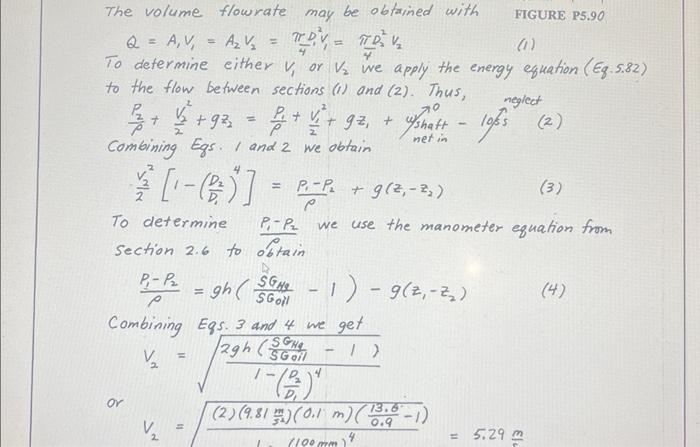 The volume flowrate may be obtained with
FIGURE P5.90
Q = A₁V₁ = A₂V₂ = πD₁²/4 V₁ = πD₂²/4 V₂ (1)
To determine either V₁ or V₂ we apply the energy equation (Eq. 5.82)
to the flow between sections (1) and (2). Thus,
P₂/ρ + V₂²/2 + gz₂ = P₁/ρ + V₁²/2 + gz₁ + w shaft net in ↗0 - loss ↗neglect (2)
Combining Eqs. 1 and 2 we obtain
V₂²/2 [1-(D₂/D₁)⁴] = P₁-P₂/ρ + g(z₁-z₂) (3)
To determine P₁-P₂/ρ we use the manometer equation from
Section 2.6 to obtain
P₁-P₂/ρ = gh(SG Hg/SG oil - 1) - g(z₁-z₂) (4)
Combining Eqs. 3 and 4 we get
V₂ = √(2gh(SG Hg/SG oil - 1)/1-(D₂/D₁)⁴)
or
V₂ = √((2)(9.81 m/s²)(0.1 m)(13.6/0.9 - 1) = 5.29 m
(100 mm)⁴